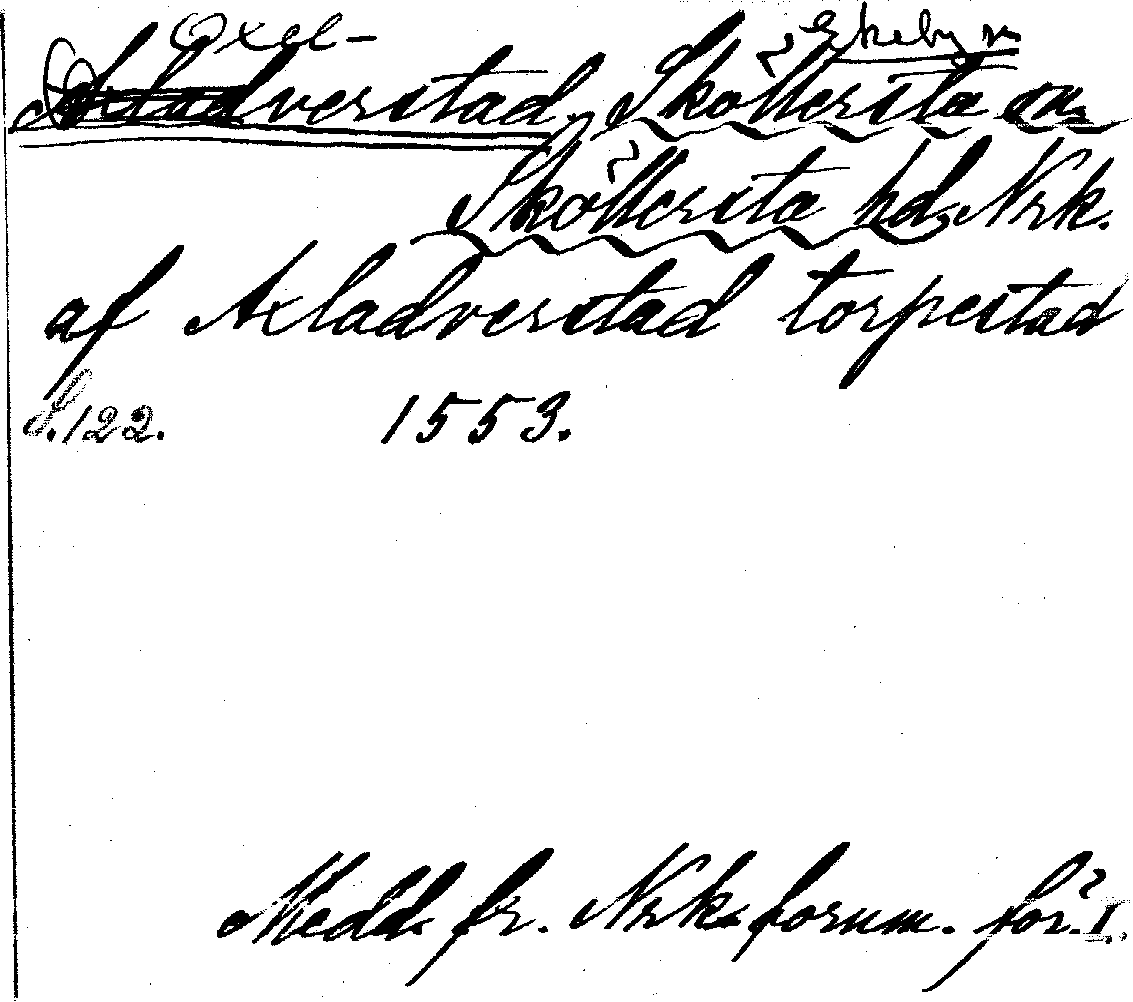 Oxel- Ekeby sn
Axladverstad, Sköllersta sn
Sköllersta hd, Nrk.
af Axladverstad torpestad
S. 122. 1553.
Medd. fr. Nrks fornm. för. I.